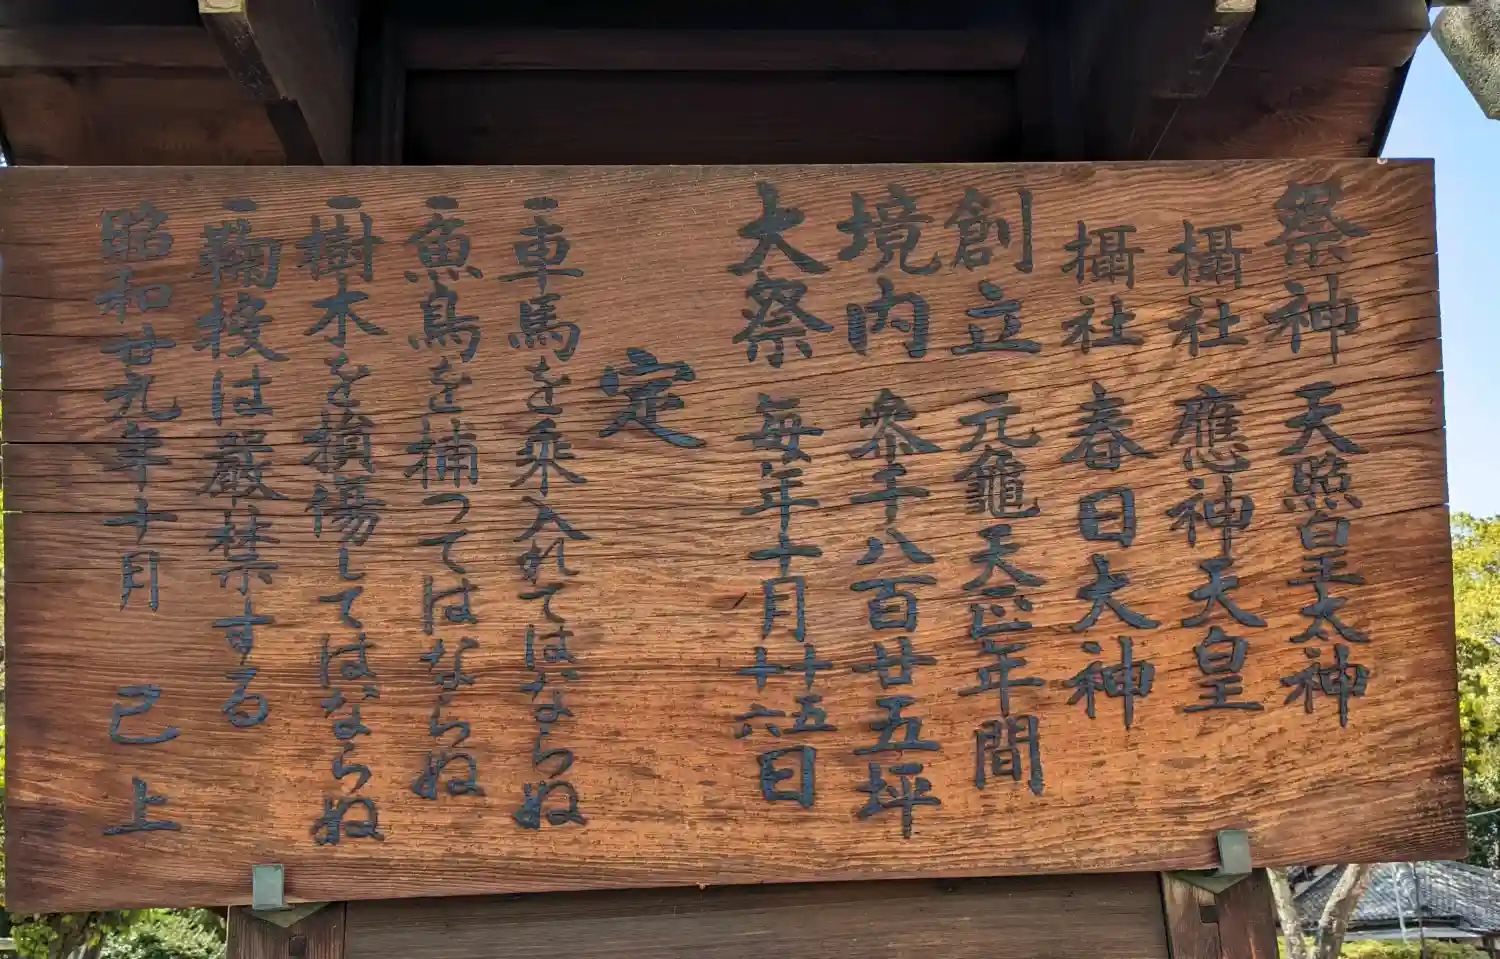 祭神 天照皇太神
攝社 應神天皇
攝社 春日大神
創立 元龜天正年間
境内 参千八百廿五坪
大祭 毎年十月廿五六日
定
一車馬を乗入れてはならぬ
一魚鳥を捕つてはならぬ
一樹木を損傷してはならぬ
一鞠投は嚴禁する
昭和廿九年十月 己上